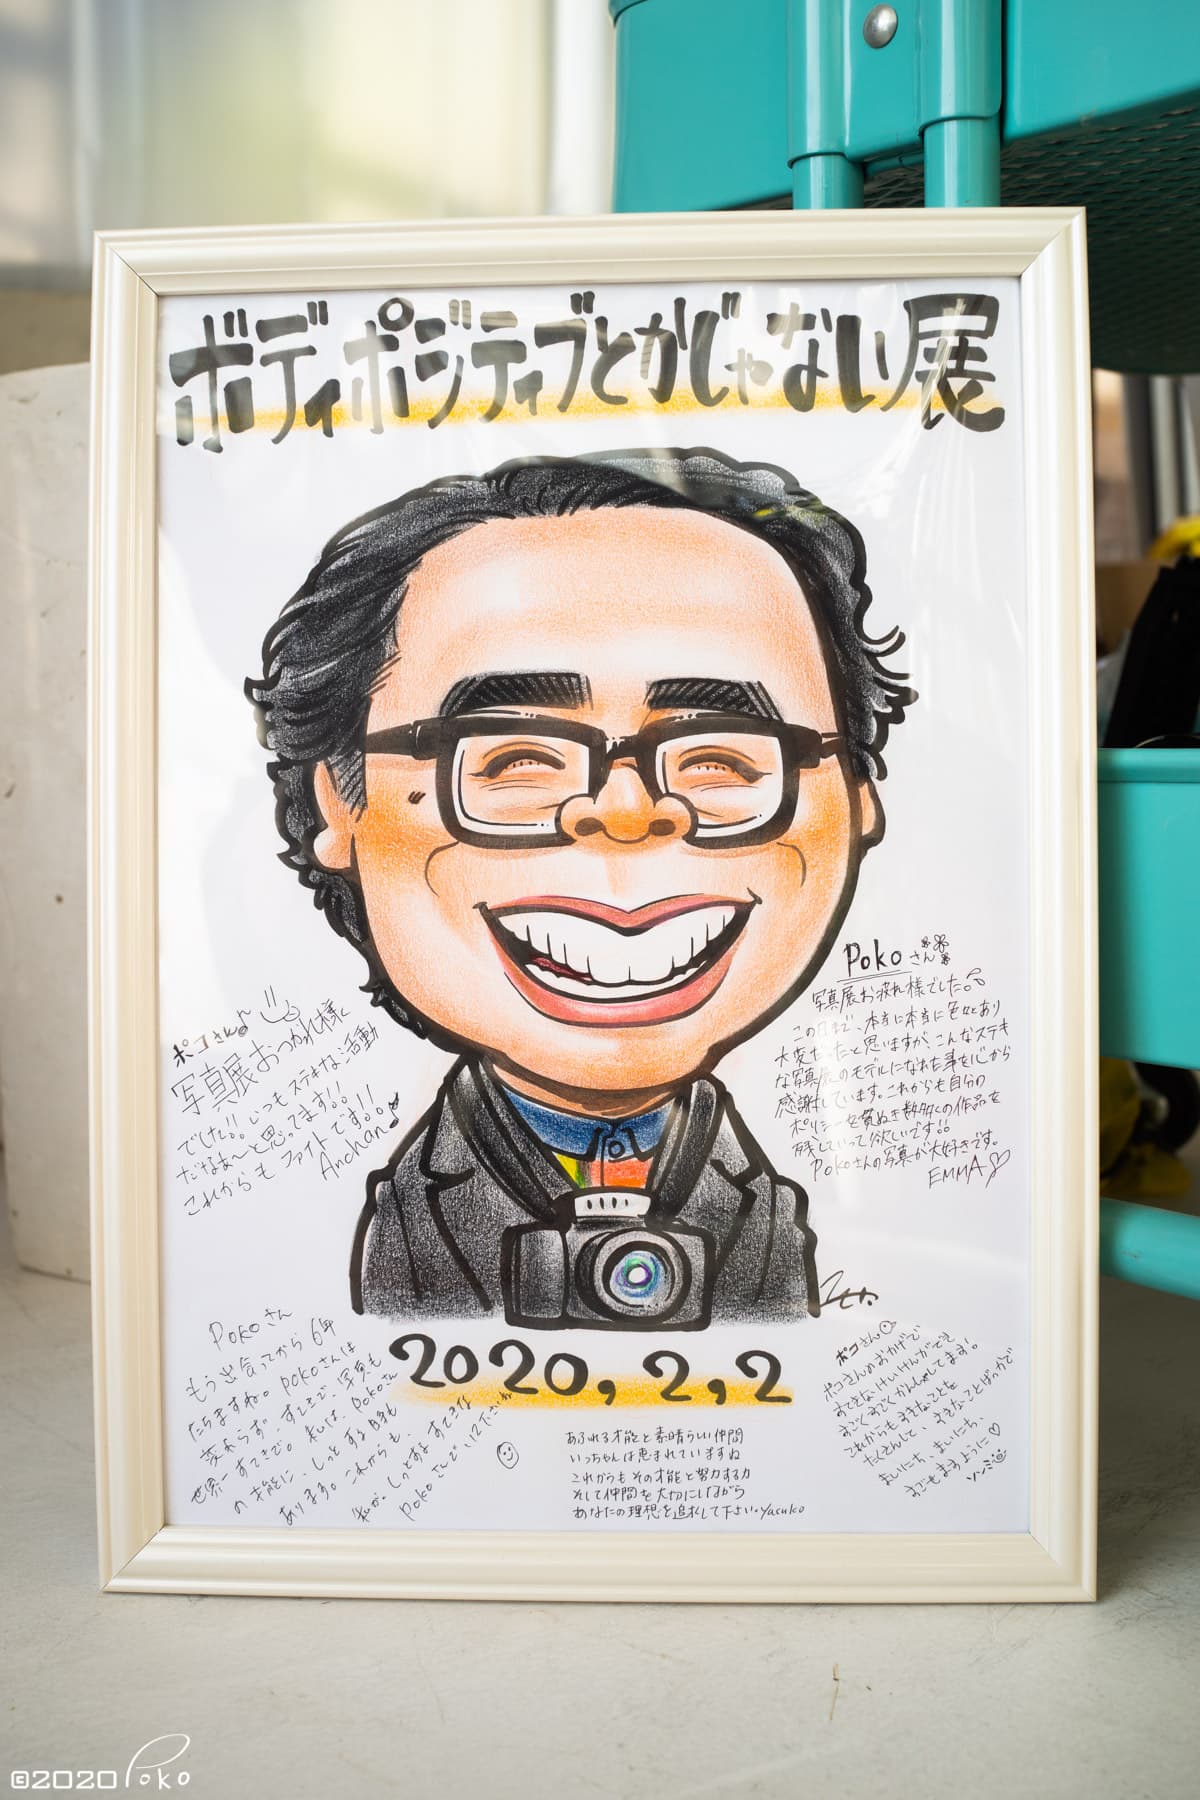 ボディポジティブとかじゃない展
Pokoさん
写真展お疲れ様でした。
この日まで、本当に本当に色々とあり
大変だったと思いますが、こんなステキ
な写真展のモデルになれた事を心から
感謝しています。これからも自分の
ポリシーを貫ぬき数多くの作品を
残していって欲しいです!!
Pokoさんの写真が大好きです。
EMMA
ポコさん♪
写真展おつかれ様
でした!! いつもステキな活動
だなぁ〜と思ってます!!
これからもファイトです!!
Anchan♪
2020,2,2
Pokoさん
もう出会ってから6年
たちますね。Pokoさんは
変わらず、すてきで、写真も
世界一すてきで。私は、Pokoさん
の才能に、しっとする日も
あります。これからも、
私が、しっとするすてきな
Pokoさんでいて下さいね
あふれる才能と素晴らしい仲間
いっちゃんは恵まれていますね
これからもその才能と努力する力
そして仲間を大切にしながら
あなたの理想を追求して下さい。Yasuko
ポコさん
ポコさんのおかげで
すてきなけいけんができ
すごくすごくかんしゃしてます!
これからもすきなことを
たくさんして、すきなことばっかで
まいにち、まいにち、
すごせますように♡
ソンミ
©2020 Poko